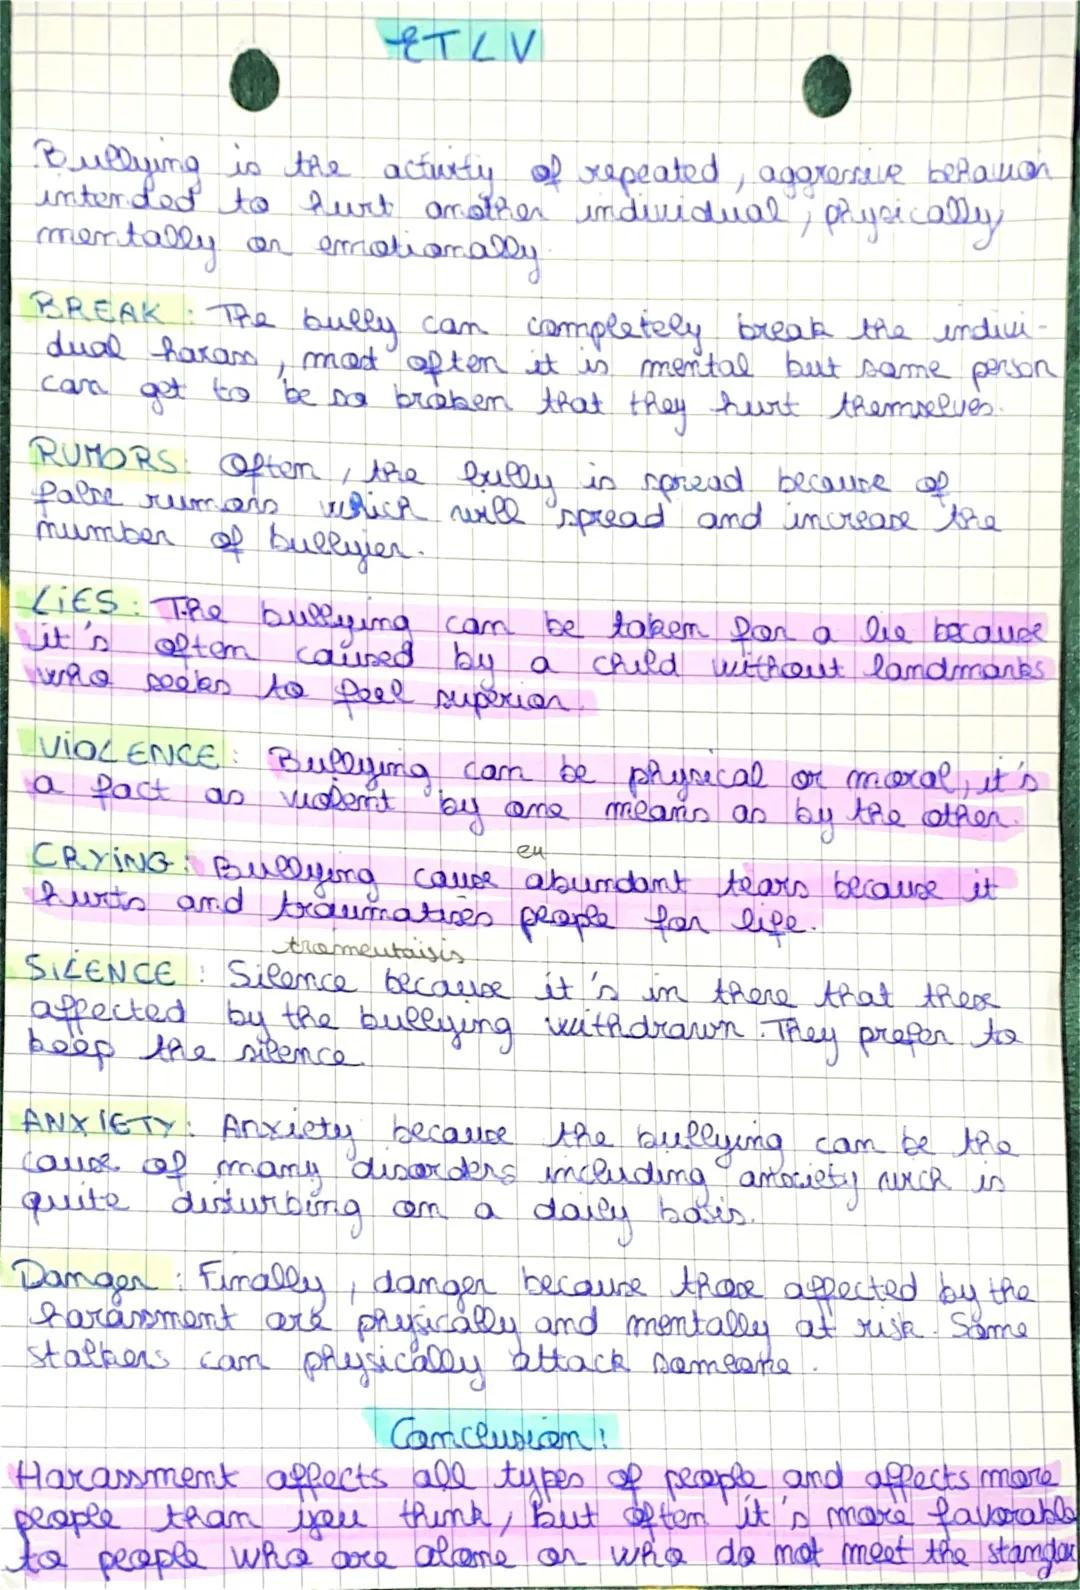 ETLV
Bullying is the activity of repeated, aggressive behavior
intended to hurt another individual, physically,
mentally or emotionally.
BREAK : The bully can completely break the indivi-
dual harass, most often it is mental but some person
can get to be so broken that they hurt themselves.
RUMORS: Often, the bully is spread because of
false rumors which will spread and increase the
number of bullyier.
LiES : The bullying can be taken for a lie because
it's often caused by a child without landmarks
who seeks to feel superior.
ViOLENCE : Bullying can be physical or moral, it's
a fact as violent by one means as by the other.
eu
CRYiNG : Bullying cause abundant tears because it
hurts and traumatises people for life.
tromeutaisis
SiLENCE : Silence because it's in there that these
affected by the bullying withdrawn. They prefer to
keep the silence.
ANXIETY : Anxiety because the bullying can be the
cause of many disorders including anxiety wich is
quite disturbing on a daily basis.
Danger : Finally, danger because those affected by the
harassment are physically and mentally at risk. Some
stalkers can physically attack someone.
Conclusion :
Harassment affects all types of people and affects more
people than you think, but often it's more favorable
to people who are alone or who do not meet the standar